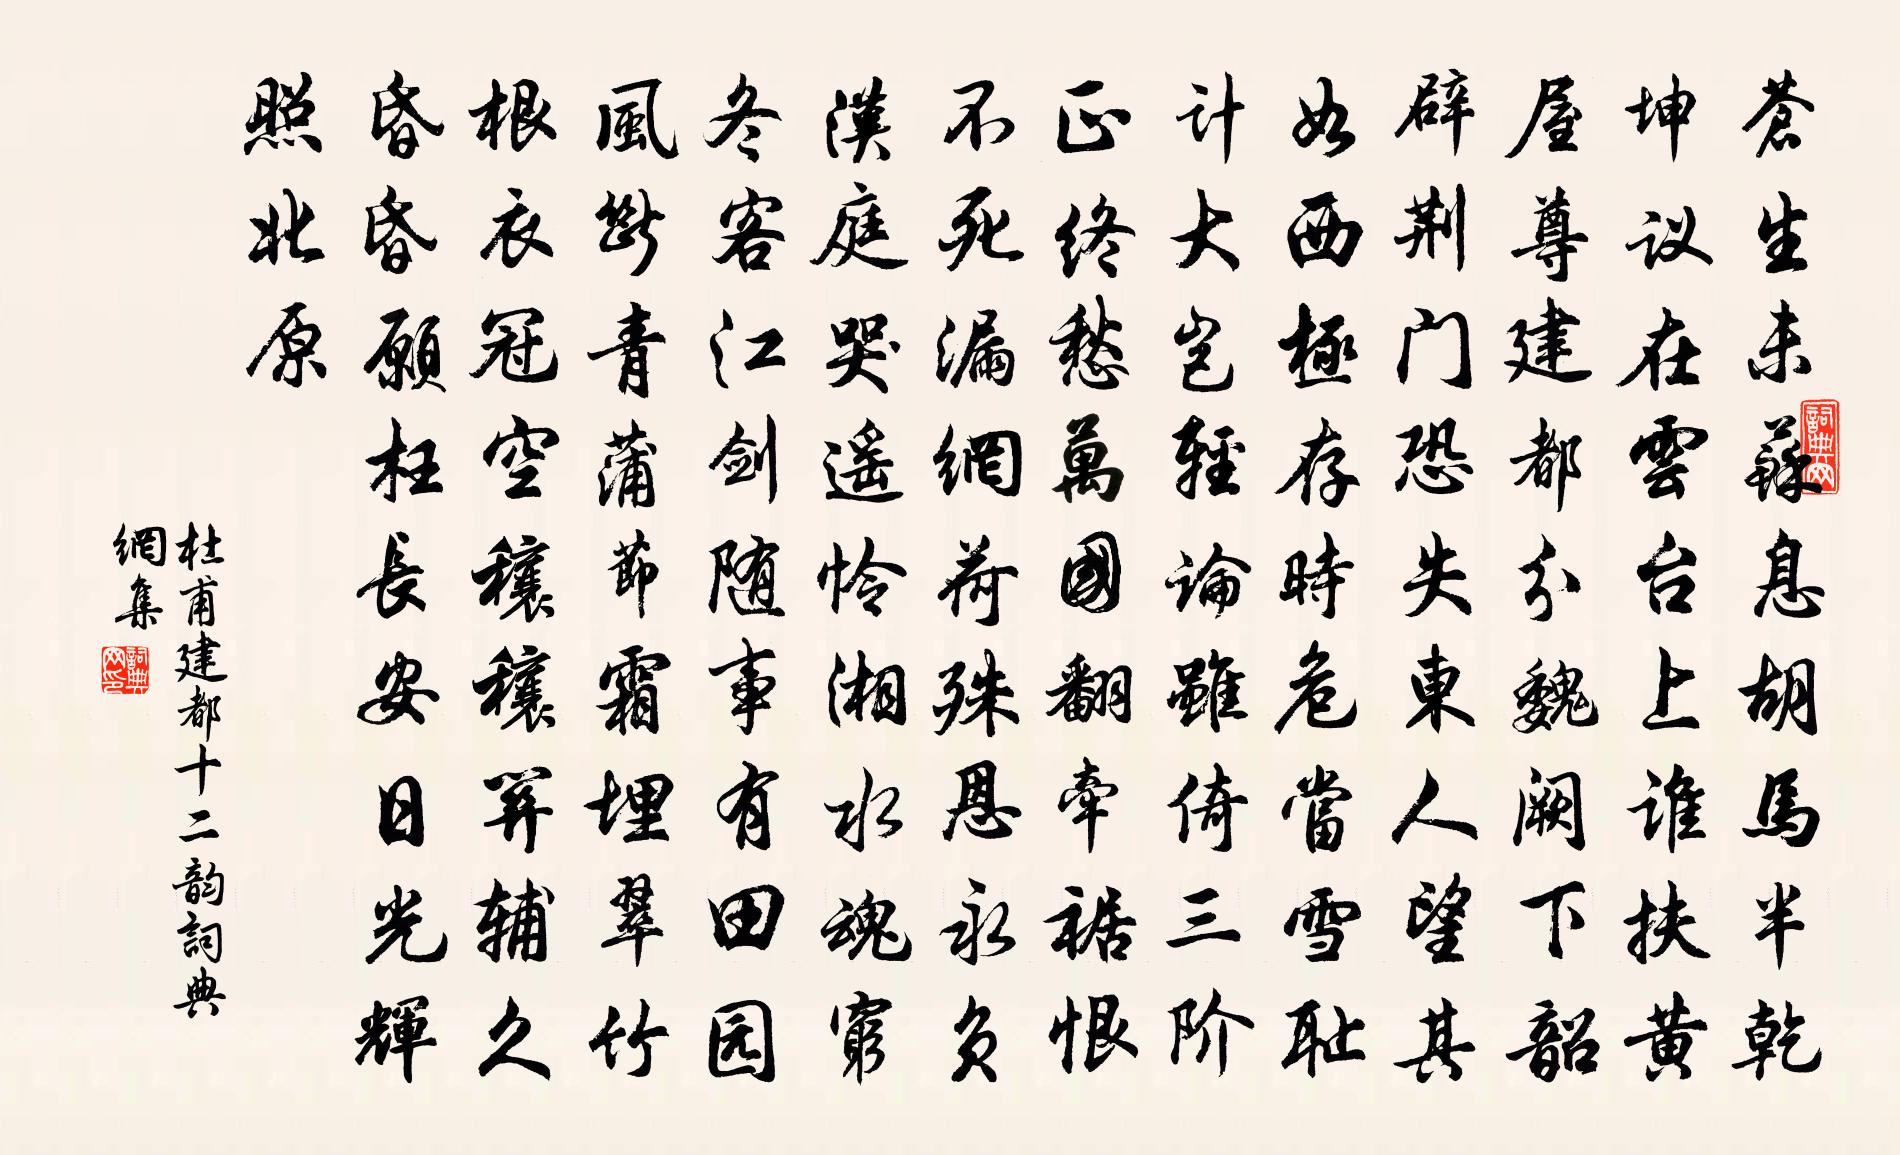 蒼生未蘇息胡馬半乾
坤议在雲台上谁扶黄
屋尊建都分魏阙下韶
辟荆门恐失東人望其
如西極存時危當雪耻
计大岂輕論雖倚三阶
正终愁萬國翻牵裾恨
不死漏網荷殊恩永负
漢庭哭遥怜湘水魂窮
冬客江剑随事有田园
風斷青蒲節霜埋翠竹
根衣冠空穰穰關辅久
昏昏願枉長安日光輝
照北原
杜甫建都十二韵詞典
網集
詞典网
詞典网印